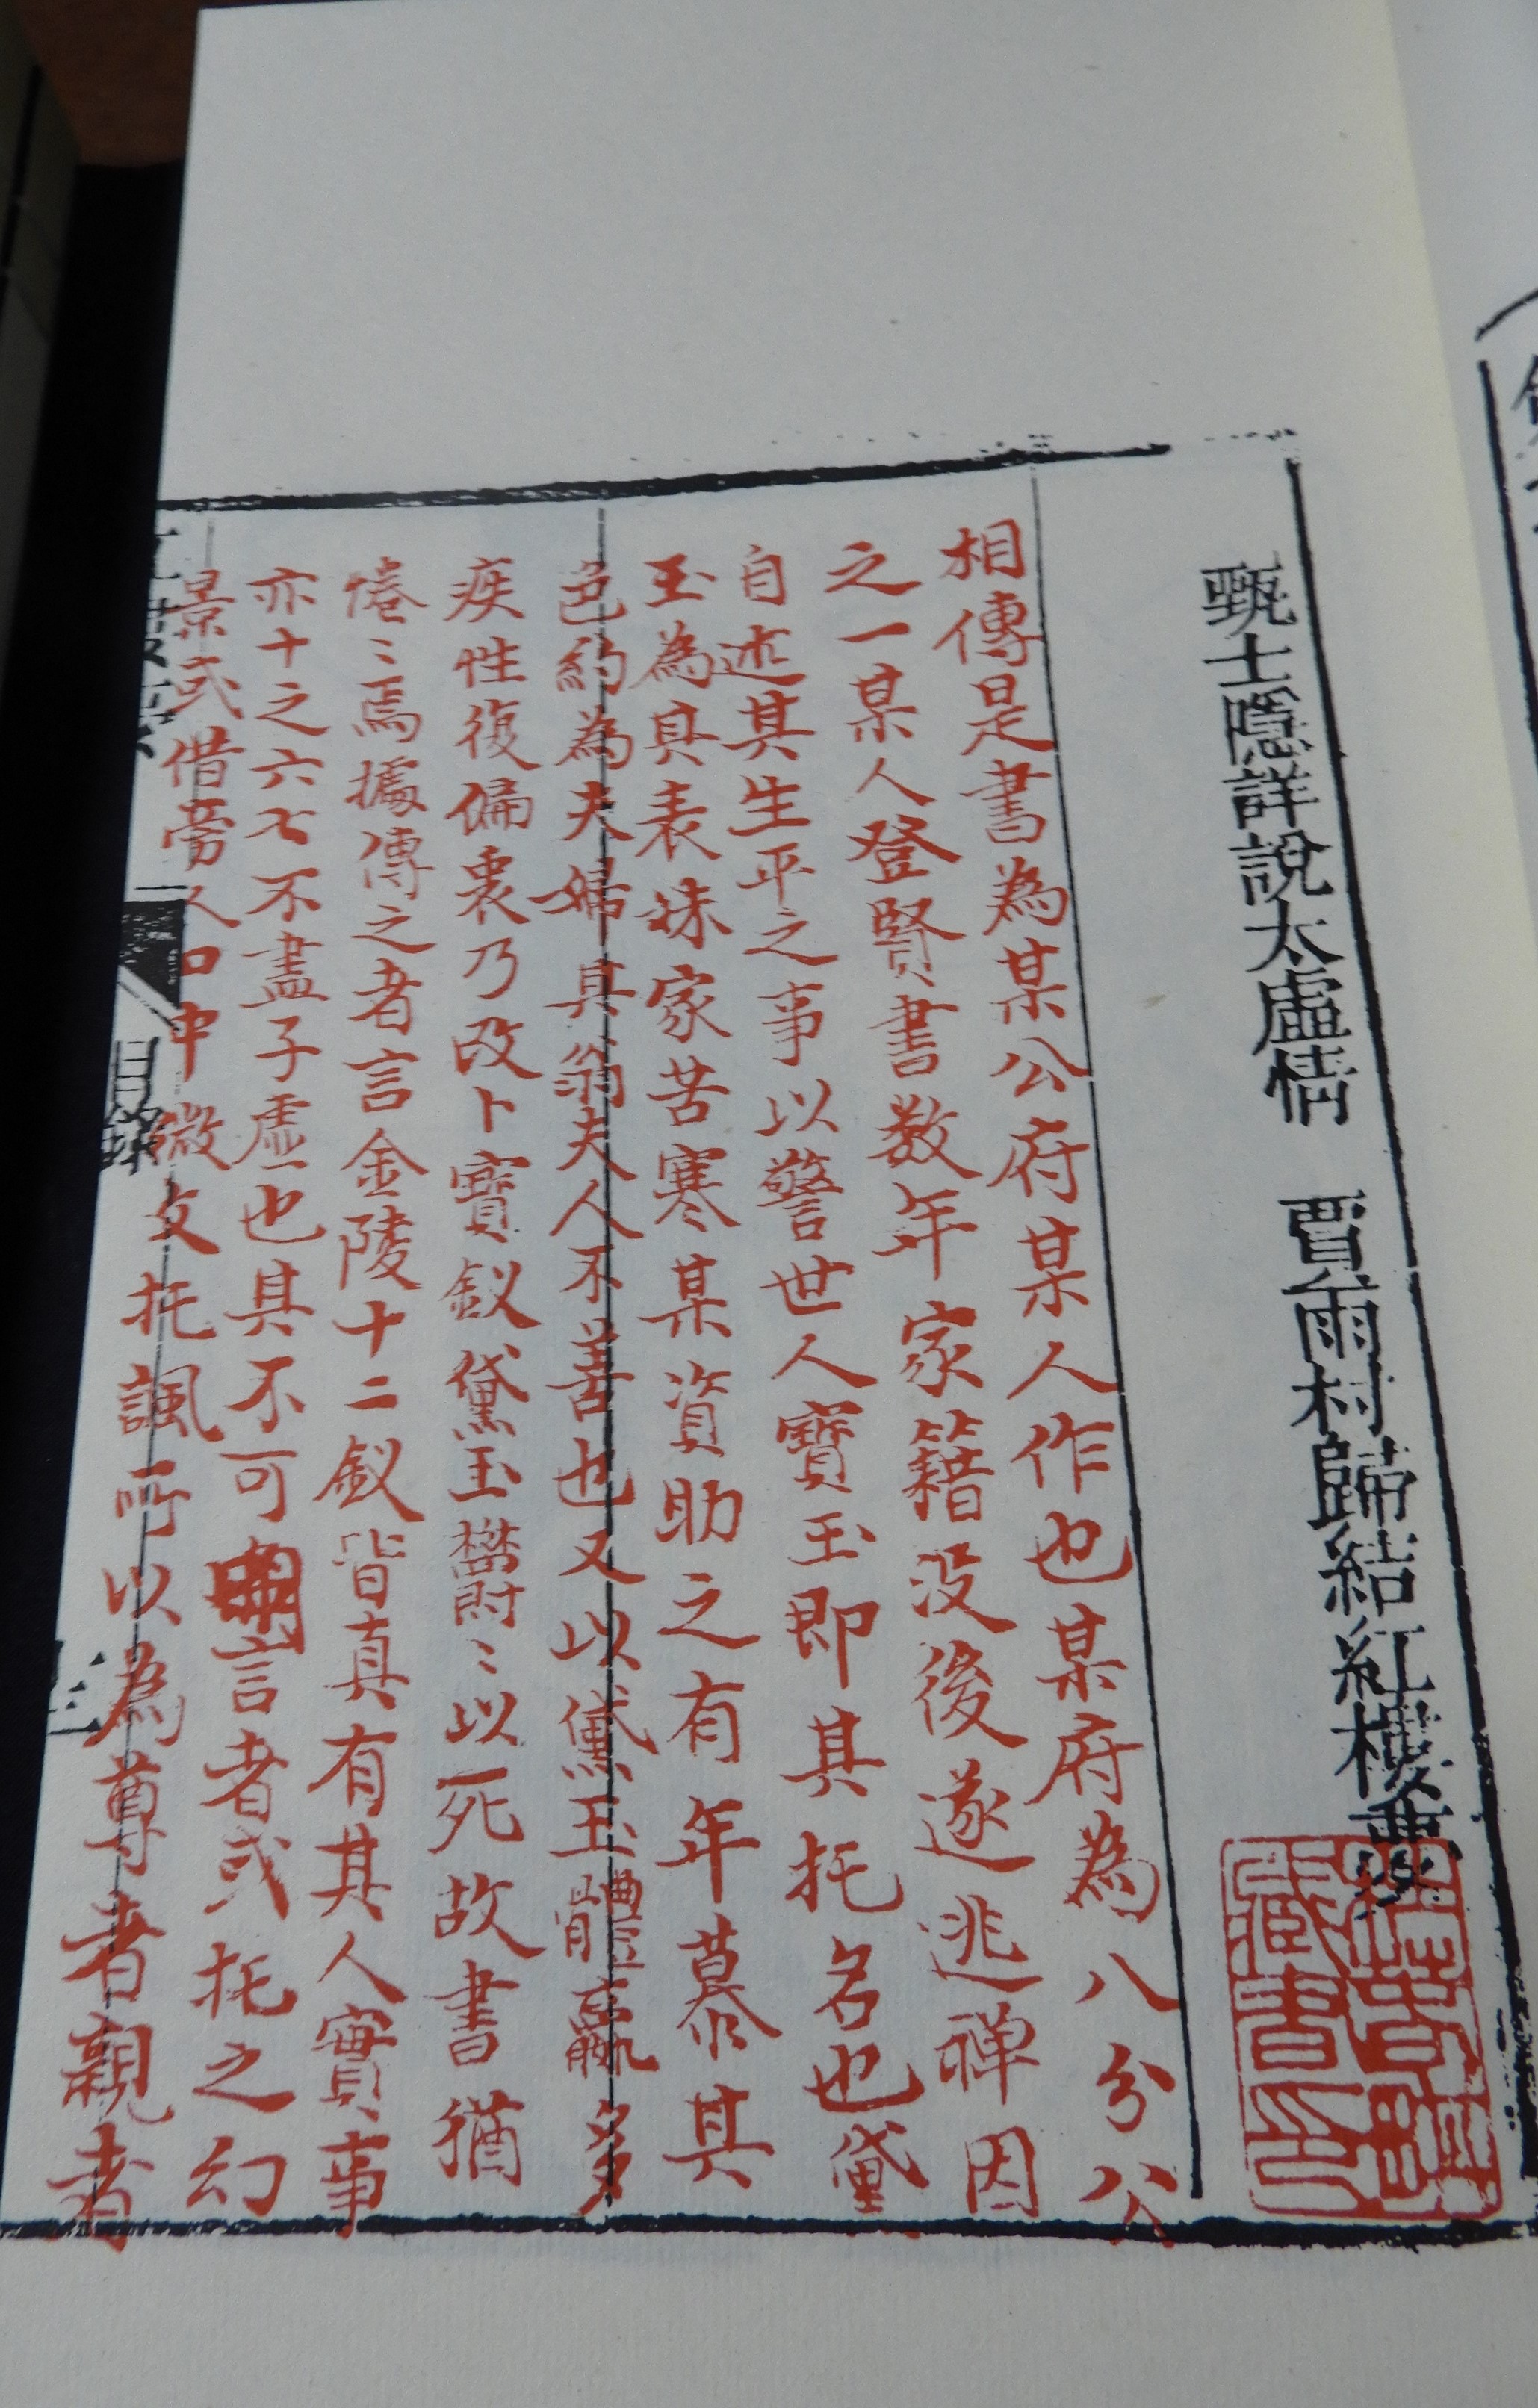 甄士隱詳說太虛情　賈雨村歸結紅樓夢
藏書印
相傳是書為某公府某人作也某府為八分公
之一某人登賢書数年家籍没後遂逃禅因
自述其生平之事以警世人寶玉即其托名也黛
玉為其表妹家苦寒某資助之有年慕其
色約為夫婦其翁夫人不善也又以黛玉體羸多
疾性復偏衷乃改卜寶釵黛玉欝〻以死故書猶
惓〻焉據傳之者言金陵十二釵皆真有其人實事
亦十之六七不盡子虛也其不可明言者或托之幻
景或借旁人口中微文托諷所以為尊者親者
目錄